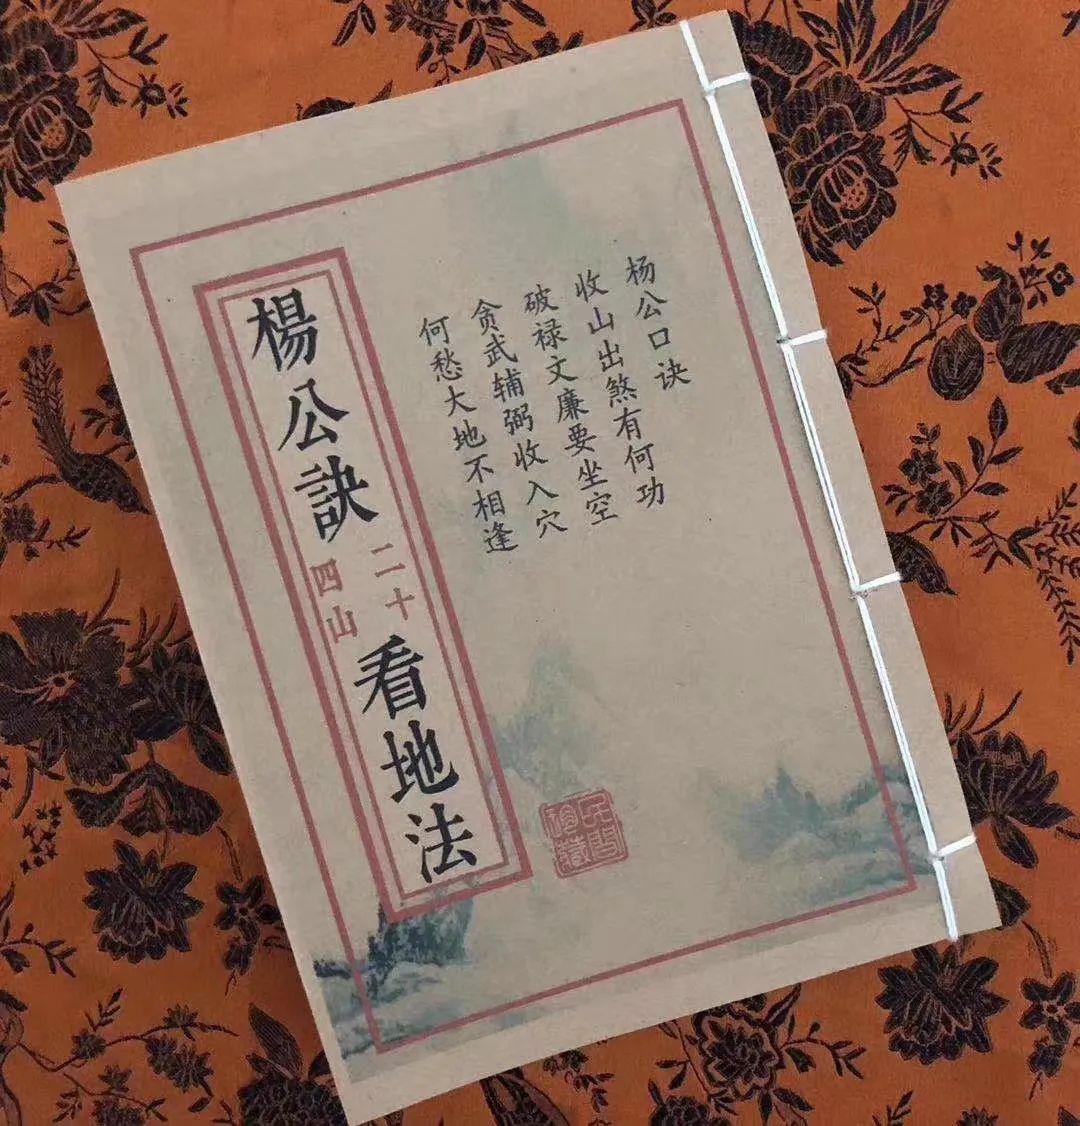 杨公口诀
收山出煞有何功
破禄文廉要坐空
贪武辅弼收入穴
何愁大地不相逢
楊公訣
二十
四山
看地法
民间
珍藏